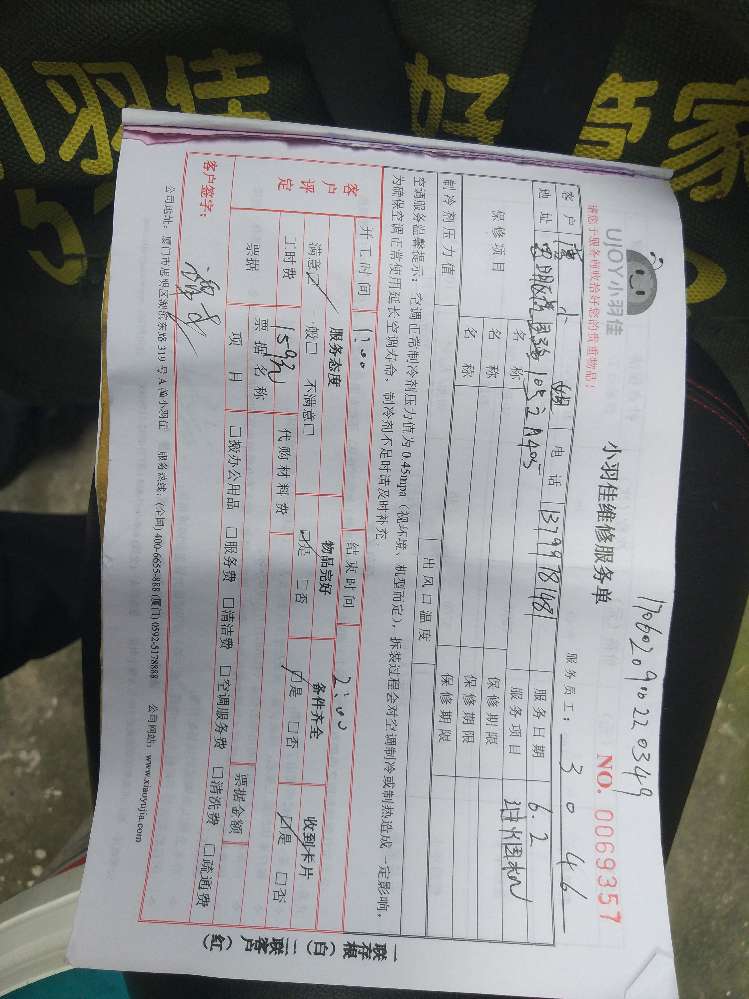 小羽佳 好管家
1706020900220349
UJOY小羽佳
小羽佳维修服务单
NO. 0069357
请您于服务前收拾好您的贵重物品!
服务员工: 3046
客户 电话 13799781481 服务日期 6.2
地址 1052 A905 服务项目
保修项目 名称 保修期限
名称 保修期限
名称 保修期限
制冷剂压力值 出风口温度
空调服务温馨提示: 空调正常制冷剂压力值为0.45mpa (视环境、机型而定), 拆装过程会对空调制冷或制热造成一定影响,
为确保空调正常使用延长空调寿命, 制冷剂不足时请及时补充.
开工时间 1:00 结束时间 2:00
客户评定 服务态度 物品完好 备件齐全 收到卡片
满意☑ 一般□ 不满意□ ☑是 □否 ☑是 □否 ☑是 □否
工时费 159元 代购材料费
票据 票据名称 票据金额
项目 □搬办公用品 □服务费 □清洁费 □空调服务费 □清洗费 □疏通费
客户签字:
公司地址: 厦门市思明区湖滨东路319号A 小羽佳 服务热线: (全国) 400-6655-888 (厦门) 0592-5178888 公司网站: www.xiaoyujia.com
一联存根(白) 二联客户(红)